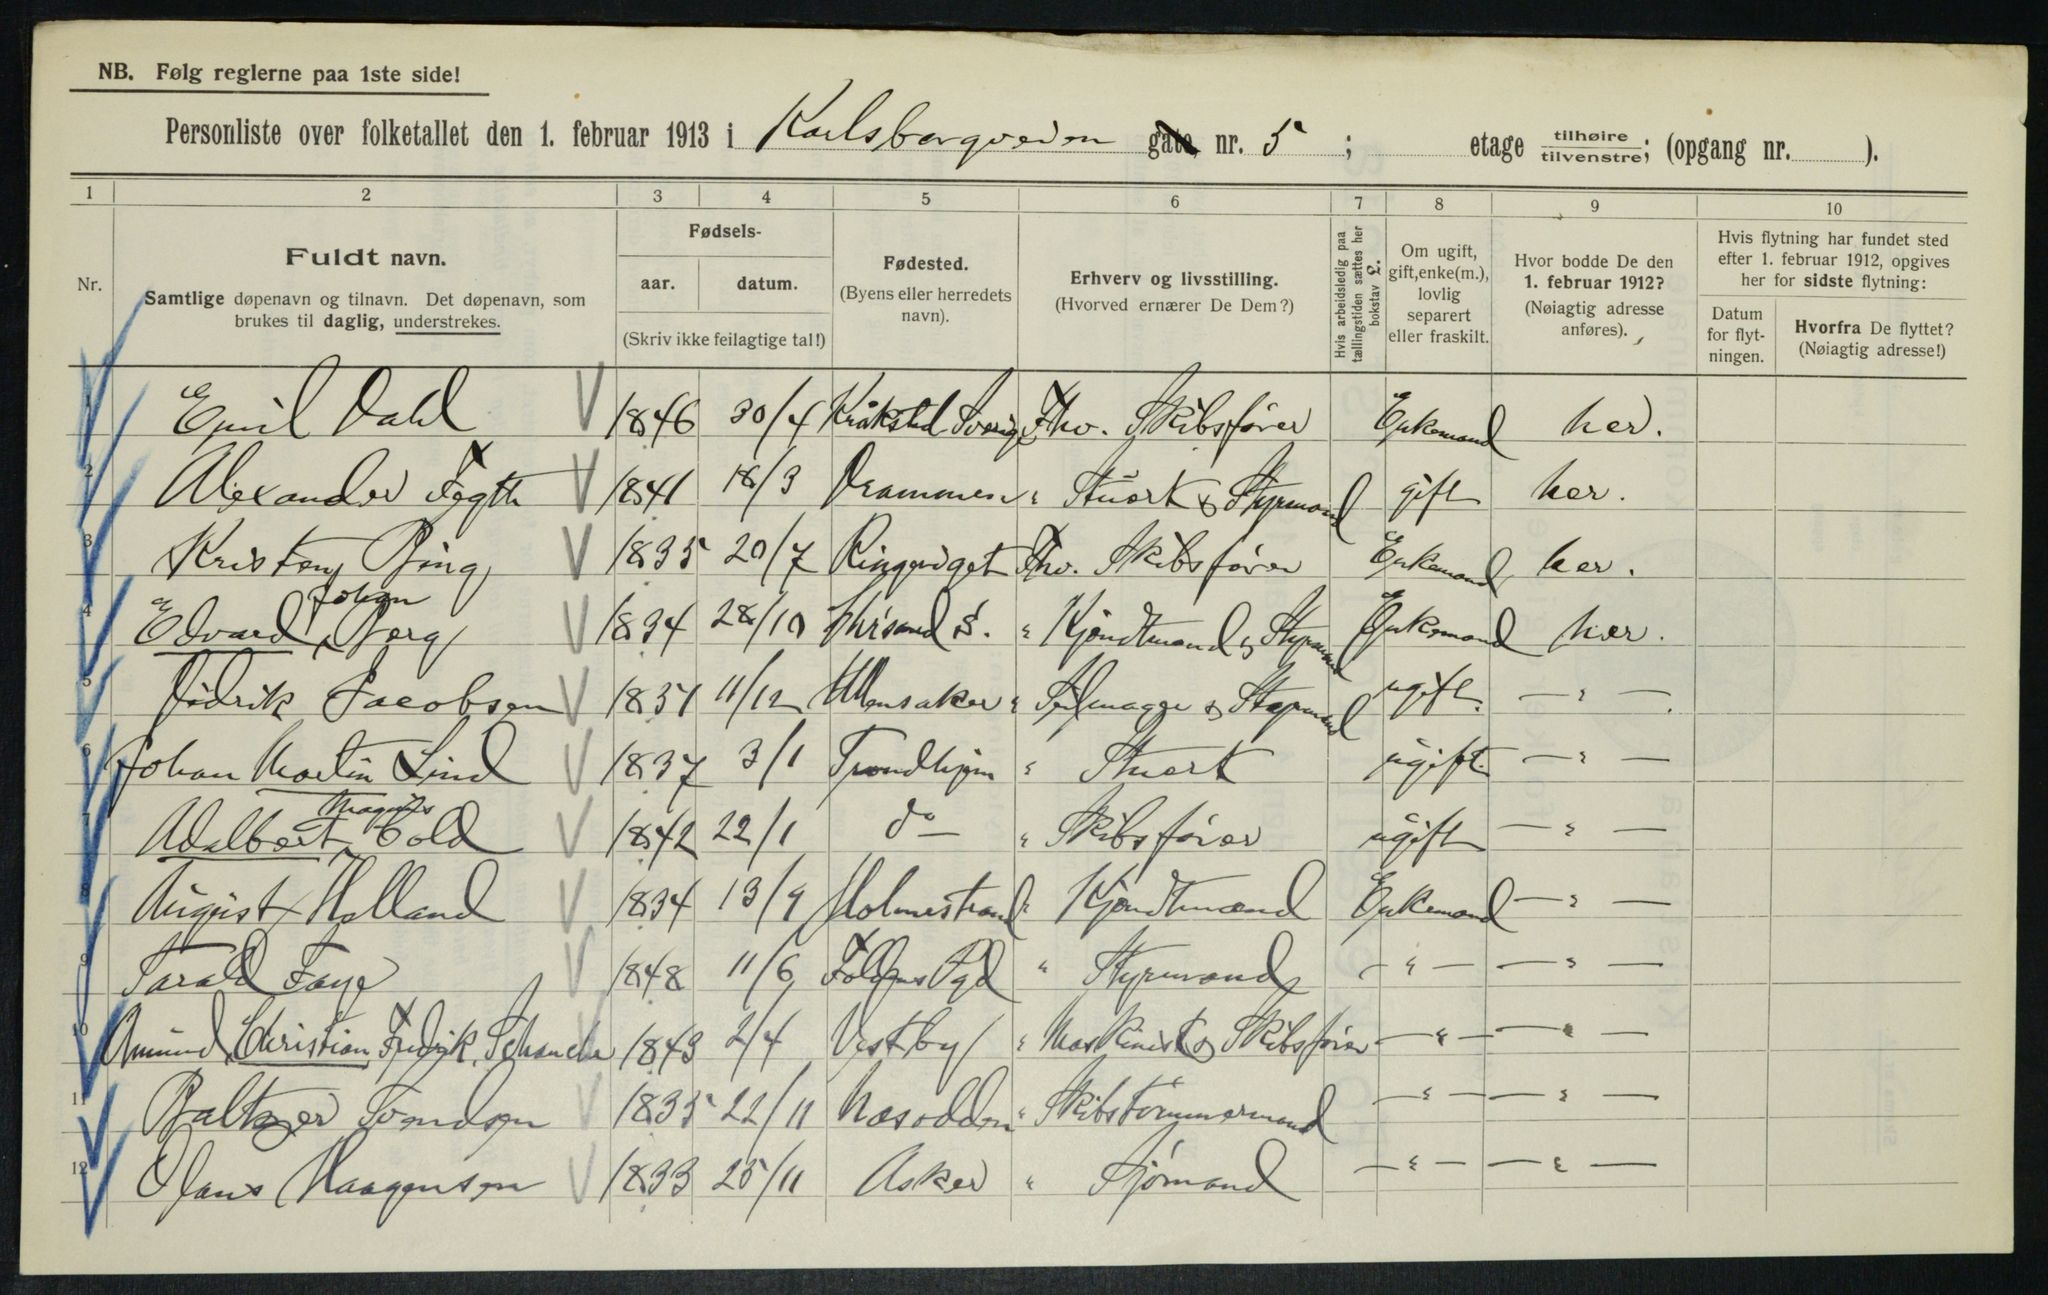 NB. Følg reglerne paa 1ste side!
Personliste over folketallet den 1. februar 1913 i Karlsborgveien gate, nr. 5 ; etage tilhøire / tilvenstre; (opgang nr. ).
1 2 3 4 5 6 7 8 9 10
Nr. Fuldt navn. Samtlige døpenavn og tilnavn. Det døpenavn, som brukes til daglig, understrekes.
Fødsels- aar. datum. (Skriv ikke feilagtige tal!)
Fødested. (Byens eller herredets navn).
Erhverv og livsstilling. (Hvorved ernærer De Dem?)
Hvis arbeidsledig paa tællingstiden sættes her bokstav L.
Om ugift, gift, enke(m.), lovlig separert eller fraskilt.
Hvor bodde De den 1. februar 1912? (Nøiagtig adresse anføres).
Hvis flytning har fundet sted efter 1. februar 1912, opgives her for sidste flytning:
Datum for flytningen. Hvorfra De flyttet? (Nøiagtig adresse!)
1 Emil Dahl 1846 30/4 Kråksted Sverige Fhv. Skibsfører Enkemand her.
2 Alexander Fegth 1841 18/3 Drammen " Stuert & Styrmand gift her.
3 Kristen Bing 1835 20/7 Ringeriget Fhv. Skibsfører Enkemand her.
4 Edvard Johan Berg 1834 28/10 Chrisand S. " Kjendtmand & Styrmand Enkemand her.
5 Didrik Jacobsen 1831 11/12 Ullensaker " Seilmager & Styrmand ugift. — " —
6 Johan Martin Lind 1837 3/1 Trondhjem " Stuert ugift. — " —
7 Adalbert Magnus Cold 1842 22/1 do — " Skibsfører ugift — " —
8 August Holland 1834 13/9 Holmestrand " Kjendtmand Enkemand — " —
9 Tarald Faye 1848 11/6 " Styrmand — " — — " —
10 Amund Christian Fredrik Schanche 1843 2/4 Vestby " Maskinist & Skibsfører — " — — " —
11 Baltzer Svendsen 1835 22/11 Næsodden " Skibstømmermand — " — — " —
12 Olaus Haagensen 1833 25/11 Asker " Sjømand — " — — " —